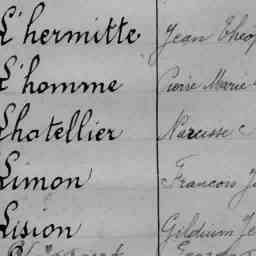 L'hermitte Jean Théop
L'homme Pierre Marie
Lhotellier Narcisse
Limon Francois
Lision